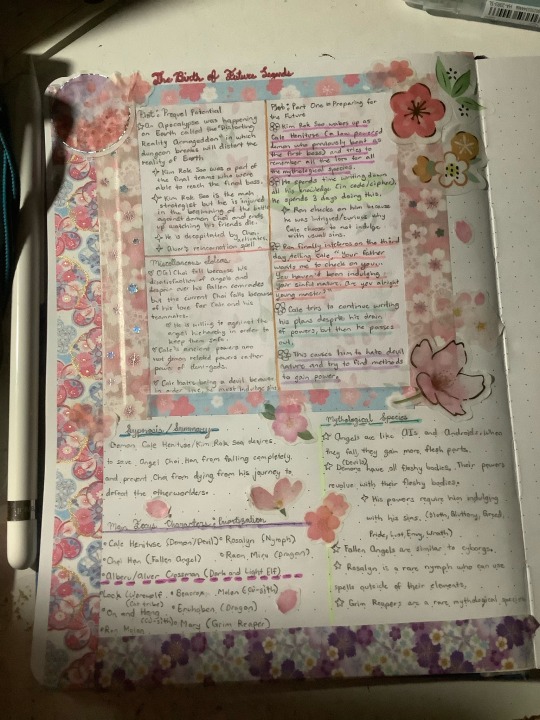 The Birth of Future Legends
Plot: Prequel Potential
An Apocalypse was happening
on Earth called the "Distorting
Reality Armageddon" in which
dungeon breaks will distort the
reality of Earth.
Kim Rok Soo was a part of
the final teams who were
able to reach the final boss.
Kim Rok Soo is the main
strategist but he is injured
in the beginning of the battle
against demon Choi and ends
up watching his friends die.
He is decapitated by Choi.
Alver's reincarnation spell
Miscellaneous Ideas
OG! Choi fell because his
of angels and
despair over his fallen comrades
but the current Choi falls because
of his love for Cale and his
teammates.
He is willing to against the
angel hierarchy in order to
keep them safe.
Cale's ancient powers are
not demon related powers rather
power of demigods.
Cale hates being a devil because
in order he must indulge
Plot: Part One = Preparing for
the Future
Kim Rok Soo wakes up as
Cale Henituse (a low powered
demon who previously bent as
the first boss) and tries to
remember all the lore for all
the mythological species.
He spends time writing down
all his knowledge (in code/cipher).
He spends 3 days doing this.
Ron checks on him because
he was intrigued/curious why
Cale chose to not indulge
with usual sins.
Ron finally interferes on the third
day, telling Cale, "Your father
wants me to check on you
you haven't been indulging
your sinful nature. Are you alright
young master"
Cale tries to continue writing
his plans despite his drain
of powers, but then he passes
out.
This causes him to hate devil
nature and try to find methods
to gain power.
Synopsis / Summary
Demon Cale Henituse/Kim Rok Soo desires
to save Angel Choi Han from falling completely,
and prevent Cha from dying from his journey to
defeat the otherworlders.
Main Character:
Cale Henituse (Demon/Devil) Rosalyn (Nymph)
Choi Han (Fallen Angel) Raon Miru (Dragon)
Alberu/Alver Crossman (Dark and Light Elf)
Lock (Werewolf Beacrox Molan (Cù-Sìth)
On and Hong Eruhaben (Dragon)
Ron Molan (Cù-Sìth) Mary (Grim Reaper)
Mythological Species
Angels are like AIs and Androids. When
they fall, they gain more flesh parts.
(Devils)
Demons have all fleshy bodies. Their powers
revolve with their fleshy bodies.
His powers require him indulging
with his sins. (Sloth, Gluttony,
Pride, Lust, Envy, Wrath)
Fallen Angels are similar to cyborgs.
Rosalyn is a rare nymph who can use
spells outside of their elements.
Grim Reapers are a rare mythological species